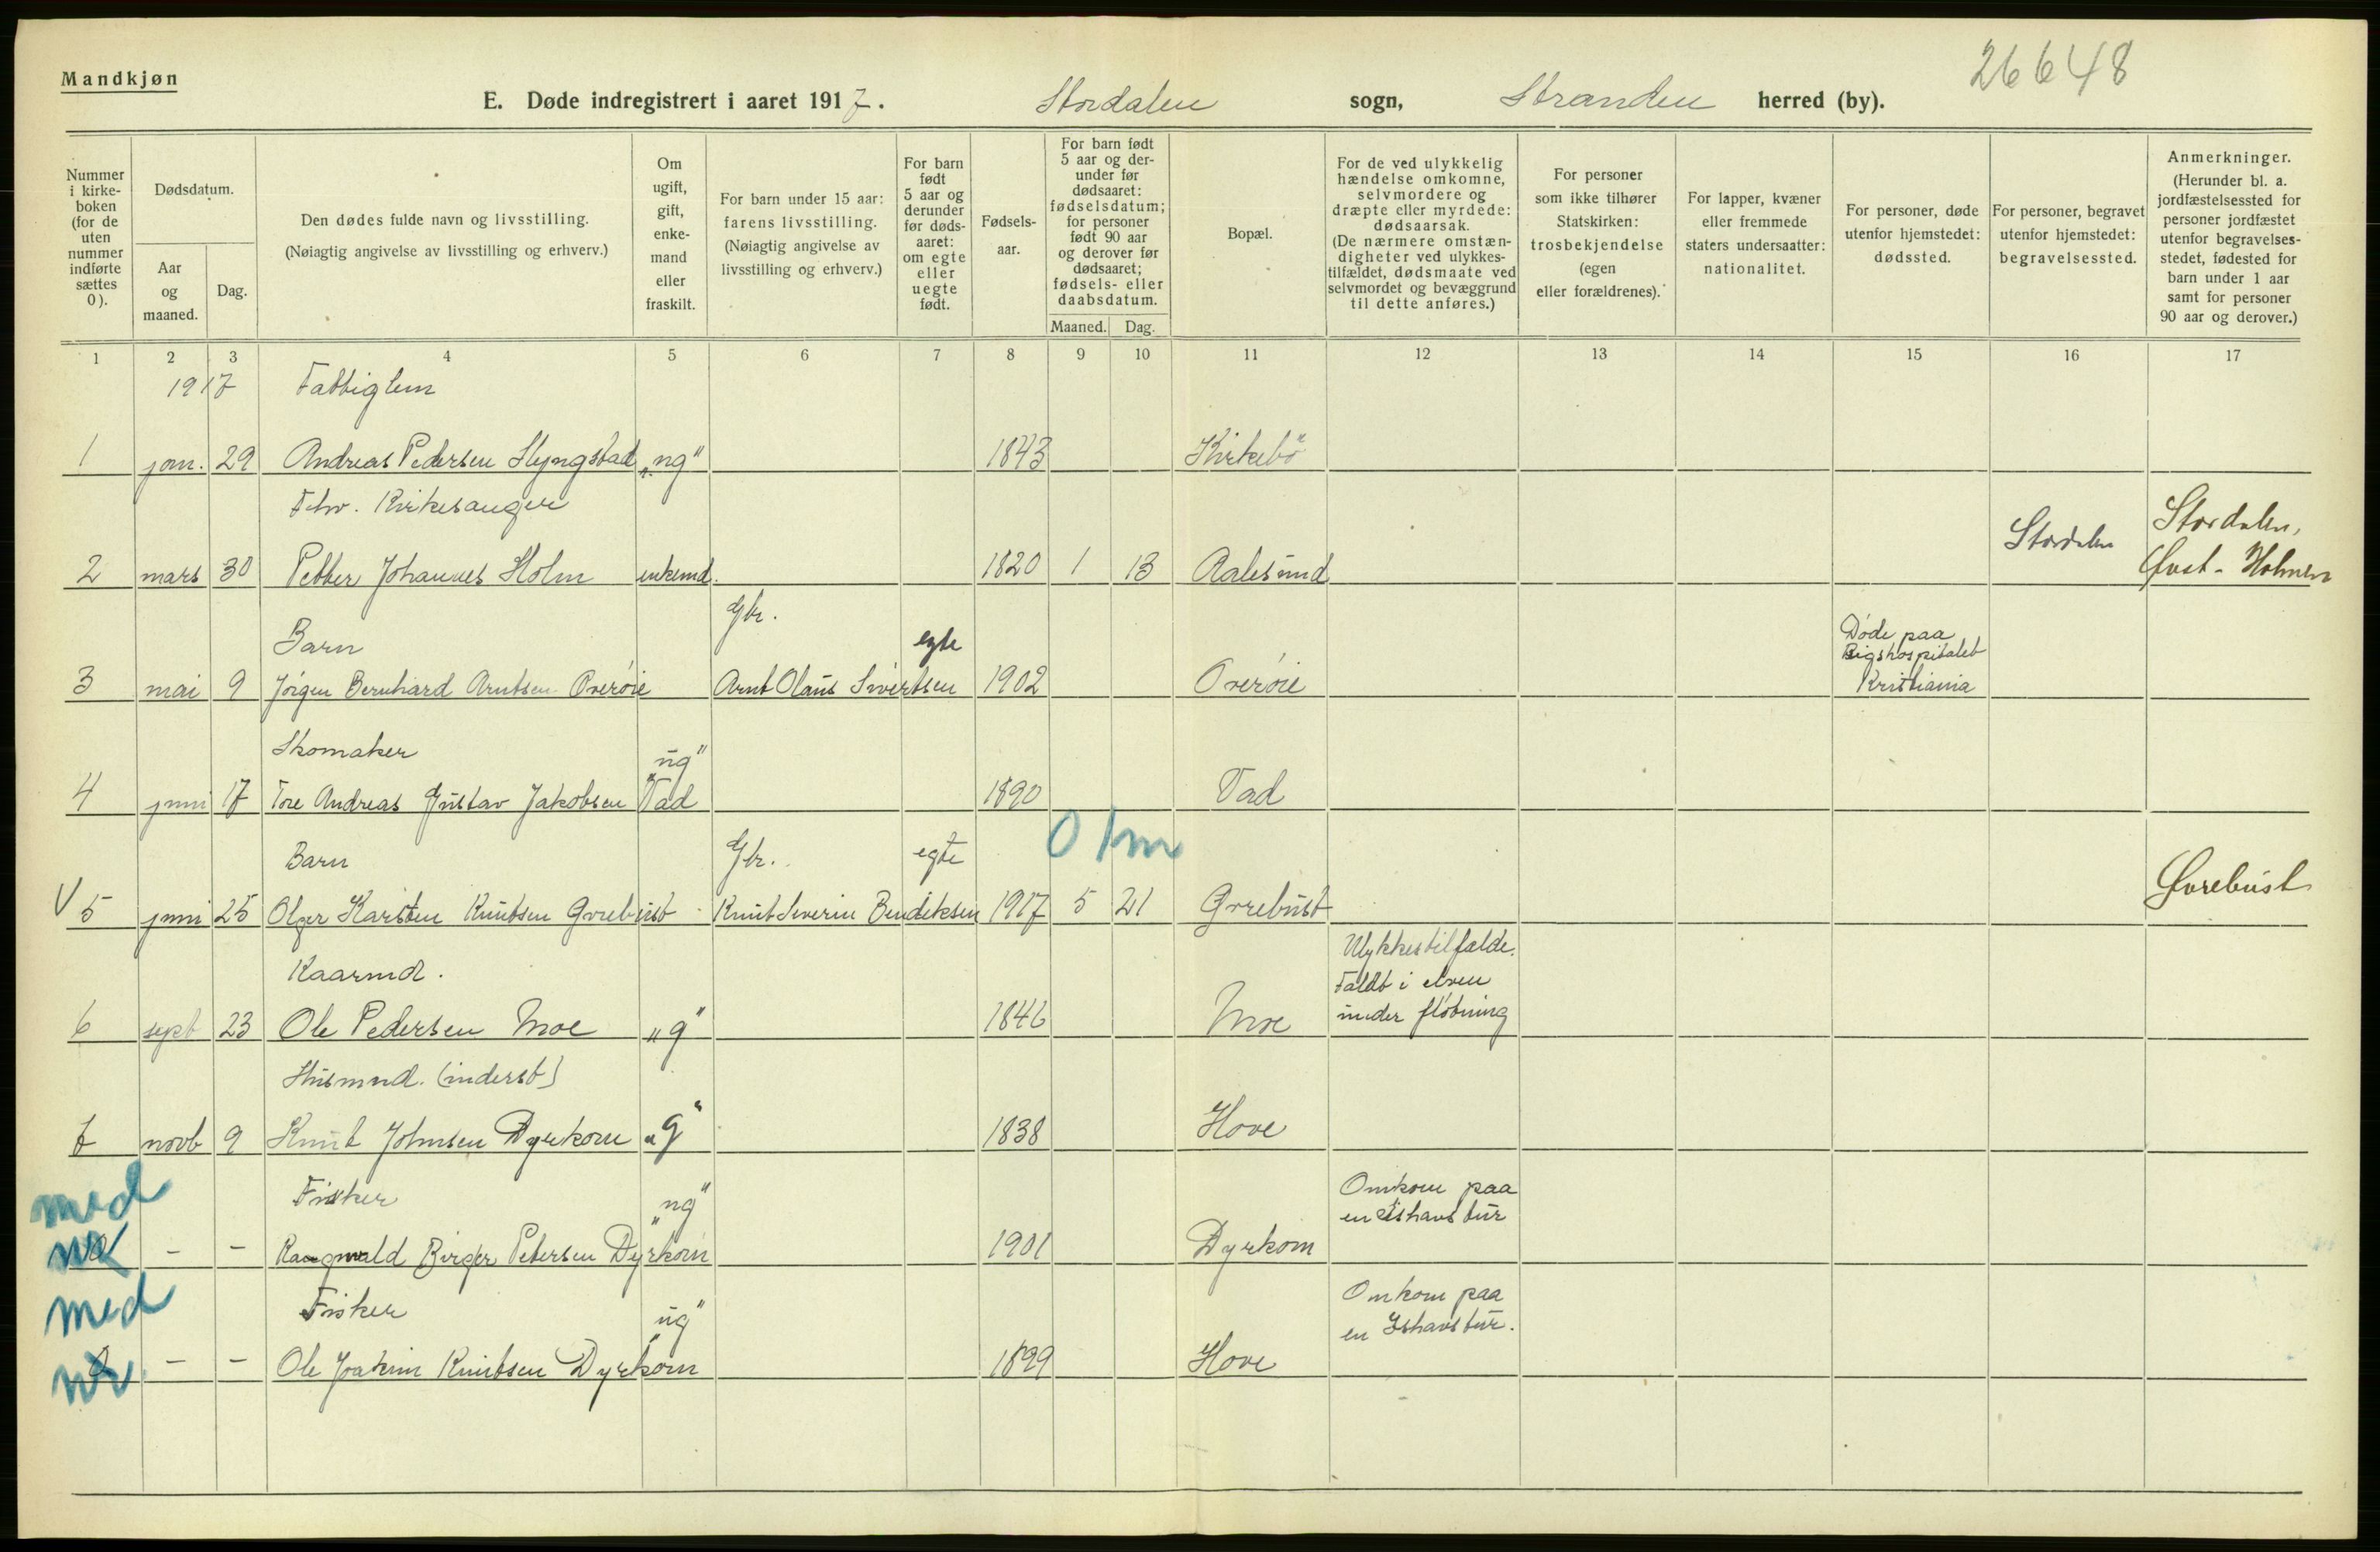 Mandkjøn
26648
E. Døde indregistrert i aaret 1917. Stordalen sogn, Stranden herred (by).
Nummer i kirke-boken (for de uten nummer indførte sættes 0).
Dødsdatum.
Aar og maaned.
Dag.
Den dødes fulde navn og livsstilling.
(Nøiagtig angivelse av livsstilling og erhverv.)
Om ugift, gift, enke-mand eller fraskilt.
For barn under 15 aar: farens livsstilling.
(Nøiagtig angivelse av livsstilling og erhverv.)
For barn født 5 aar og derunder før døds-aaret: om egte eller uegte født.
Fødsels-aar.
For barn født 5 aar og der-under før dødsaaret: fødselsdatum; for personer født 90 aar og derover før dødsaaret; fødsels- eller daabsdatum.
Maaned. Dag.
Bopæl.
For de ved ulykkelig hændelse omkomne, selvmordere og dræpte eller myrdede: dødsaarsak.
(De nærmere omstæn-digheter ved ulykkes-tilfældet, dødsmaate ved selvmordet og bevæggrund til dette anføres.)
For personer som ikke tilhører Statskirken: trosbekjendelse (egen eller forældrenes).
For lapper, kvæner eller fremmede staters undersaatter: nationalitet.
For personer, døde utenfor hjemstedet: dødssted.
For personer, begravet utenfor hjemstedet: begravelsessted.
Anmerkninger.
(Herunder bl. a. jordfæstelsessted for personer jordfæstet utenfor begravelses-stedet, fødested for barn under 1 aar samt for personer 90 aar og derover.)
1 2 3 4 5 6 7 8 9 10 11 12 13 14 15 16 17
1917 Fattiglem
1 jan. 29 Andreas Pedersen Slyngstad "ug" 1843 Kirkebö
Fhv. Kirkesanger
2 mars 30 Petter Johannes Holm enkemd. 1820 1 13 Aalesund Stordalen Stordalen, Øvst-Holmen
Barn Gbr. egte
3 mai 9 Jörgen Bernhard Arntsen Overöie Arnt Olaus Sivertsen 1902 Overöie Döde paa Rigshospitalet Kristiania
Skomaker "ug"
4 juni 17 Tore Andreas Gustav Jakobsen Vad 1890 Vad
0 1 m
Barn Gbr. egte
V 5 juni 25 Olger Karsten Knutsen Övrebust Knut Severin Bendiksen 1917 5 21 Övrebust Øvrebust
Kaarmd. Ulykkestilfælde. Faldt i elven under flötning
6 sept 23 Ole Pedersen Moe "g" 1846 Moe
Husmnd. (inderst)
7 novb 9 Knut Johnsen Dyrkorn "g" 1838 Hove
med Fisker "ug" Omkom paa en Ishavstur
nr - - Ragnvald Birger Petersen Dyrkorn 1901 Dyrkorn
med Fisker "ug" Omkom paa en Ishavstur.
nr. - - Ole Joakim Knutsen Dyrkorn 1899 Hove